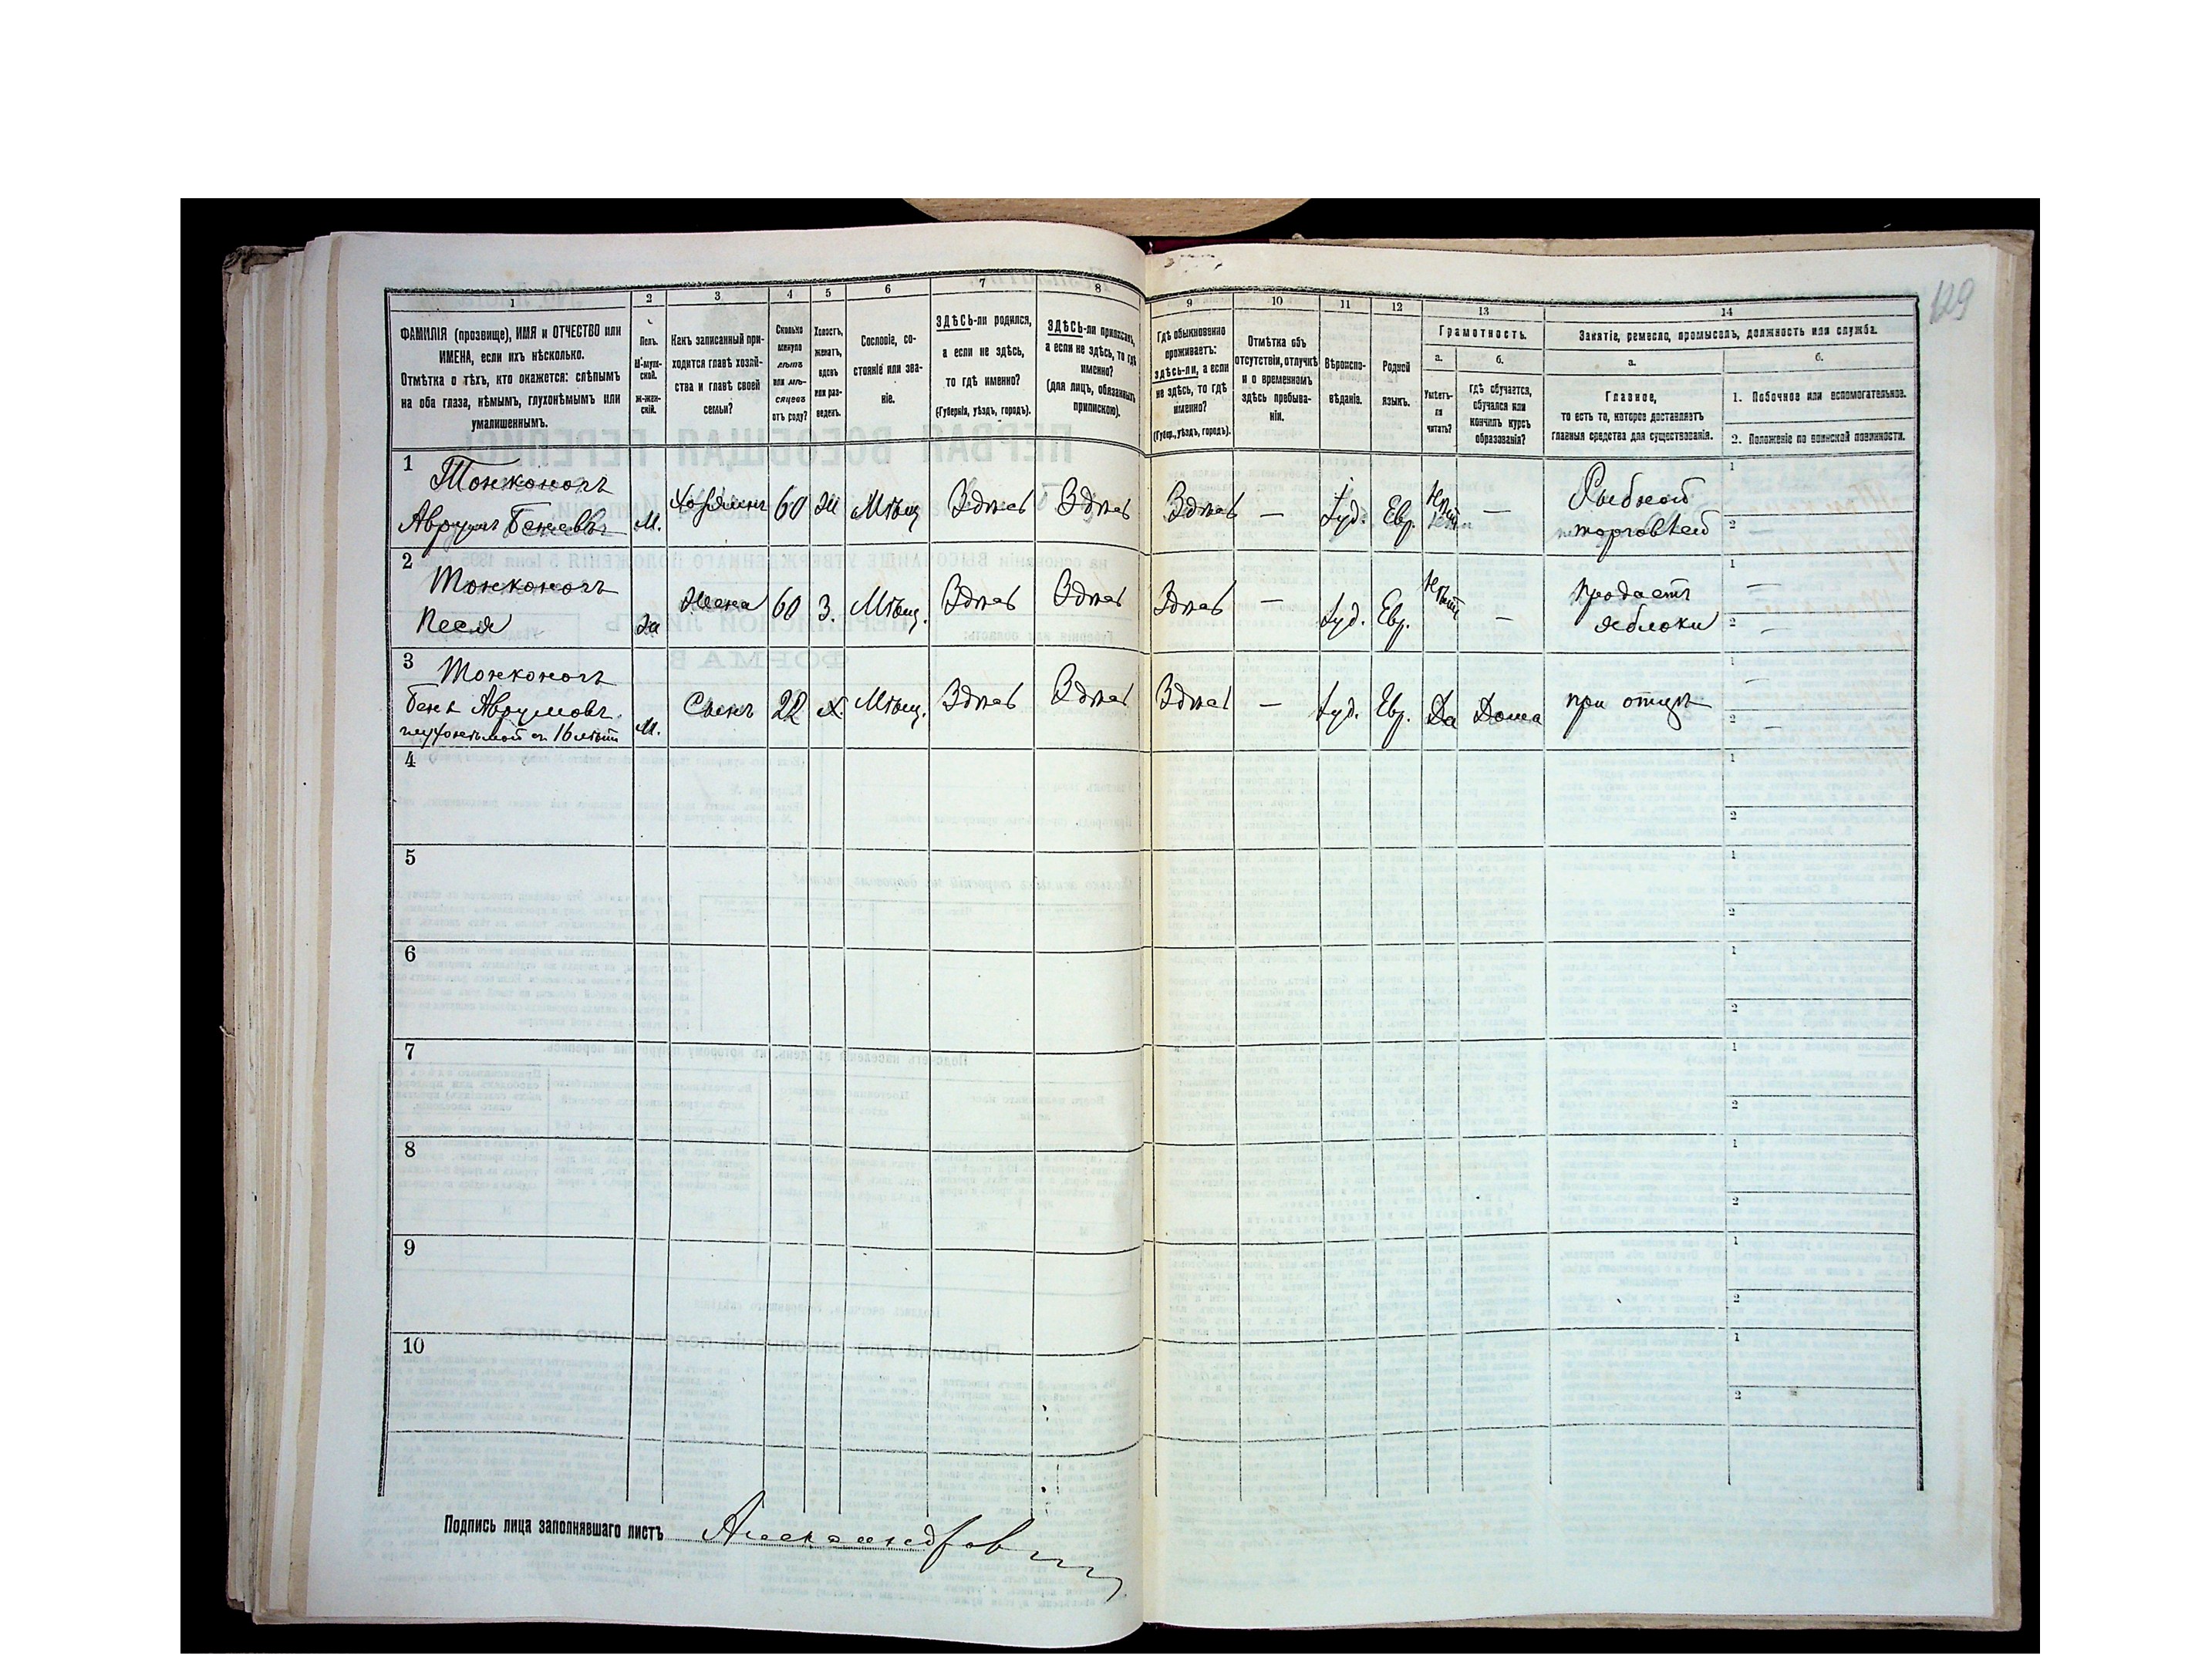 129
1 2 3 4 5 6 7 8 9 10 11 12 13 14
ФАМИЛІЯ (прозвище), ИМЯ и ОТЧЕСТВО или
ИМЕНА, если ихъ нѣсколько.
Отмѣтка о тѣхъ, кто окажется: слѣпымъ
на оба глаза, нѣмымъ, глухонѣмымъ или
умалишеннымъ.
Полъ.
М-муж-
ской.
ж-жен-
скій.
Какъ записанный при-
ходится главѣ хозяй-
ства и главѣ своей
семьи?
Сколько
минуло
лѣтъ
или мѣ-
сяцевъ
отъ роду?
Холостъ,
женатъ,
вдовъ
или раз-
веденъ.
Сословіе, со-
стояніе или зва-
ніе.
ЗДѢСЬ-ли родился,
а если не здѣсь,
то гдѣ именно?
(Губернія, уѣздъ, городъ).
ЗДѢСЬ-ли приписанъ,
а если не здѣсь, то гдѣ
именно?
(для лицъ, обязанныхъ
припискою).
Гдѣ обыкновенно
проживаетъ:
здѣсь-ли, а если
не здѣсь, то гдѣ
именно?
(Губер., уѣздъ, городъ).
Отмѣтка объ
отсутствіи, отлучкѣ
и о временномъ
здѣсь пребыва-
ніи.
Вѣроиспо-
вѣданіе.
Родной
языкъ.
Грамотность.
а. б.
Умѣетъ-
ли
читать?
гдѣ обучается,
обучался или
кончилъ курсъ
образованія?
Занятіе, ремесло, промыселъ, должность или служба.
а. б.
Главное,
то есть то, которое доставляетъ
главныя средства для существованія.
1. Побочное или вспомогательное.
2. Положеніе по воинской повинности.
1 Тонконогъ
Аврумъ Беневъ М. Хозяинъ 60 Ж Мѣщ Здѣсь Здѣсь Здѣсь — Іуд. Евр. Нѣтъ — Рыбной
торговлей
1
2
2 Тонконогъ
Песя Ж Жена 60 З. Мѣщ. Здѣсь Здѣсь Здѣсь — Іуд. Евр. Нѣтъ — продаетъ
яблоки
1 —
2 —
3 Тонконогъ
Беня Аврумовъ
глухонѣмой съ 16 лѣтъ М. Сынъ 22 Х. Мѣщ. Здѣсь Здѣсь Здѣсь — Іуд. Евр. Да Дома при отцѣ
1 —
2 —
4 1
2
5 1
2
6 1
2
7 1
2
8 1
2
9 1
2
10 1
2
Подпись лица заполнявшаго листъ Александрович